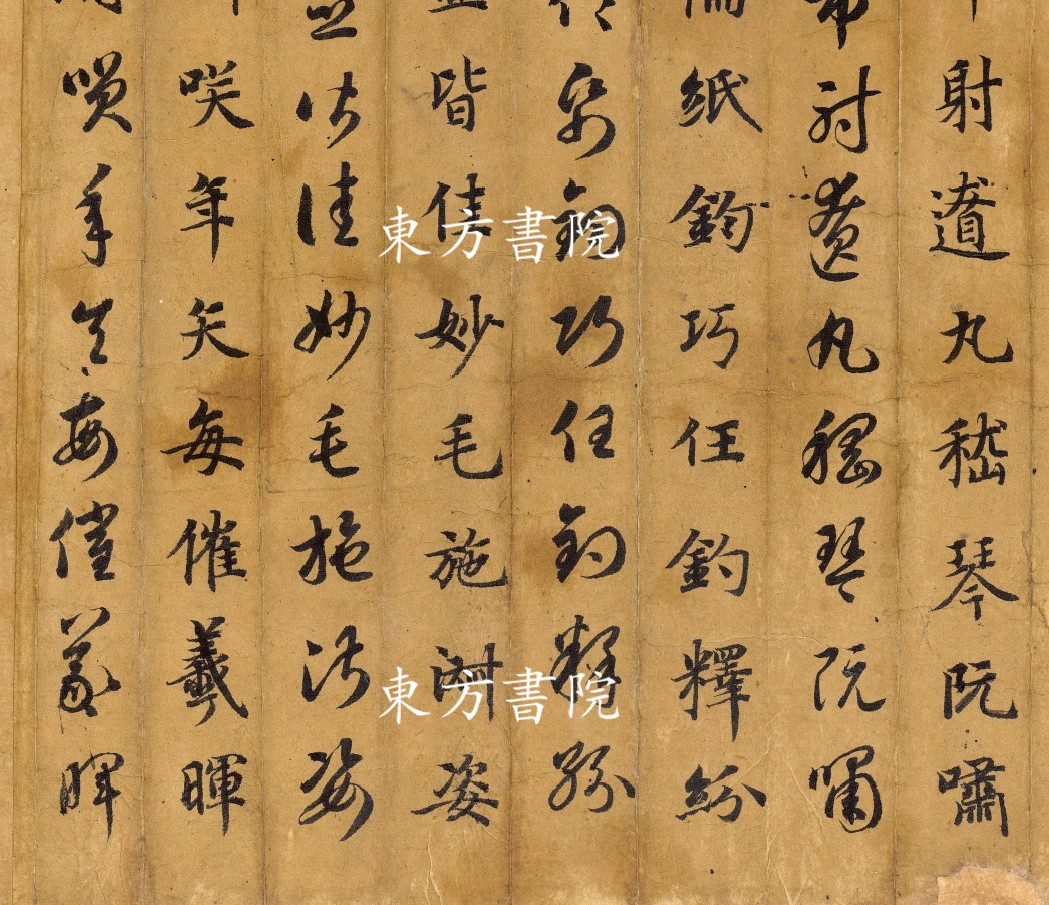 射遼丸嵇琴阮嘯
布射遼丸嵇琴阮嘯
紙鈞巧任釣釋紛
紙鈞巧任釣釋紛
皆佳妙毛施淑姿
皆佳妙毛施淑姿
咲年矢每催羲暉
咲年矢每催羲暉
東方書院
東方書院